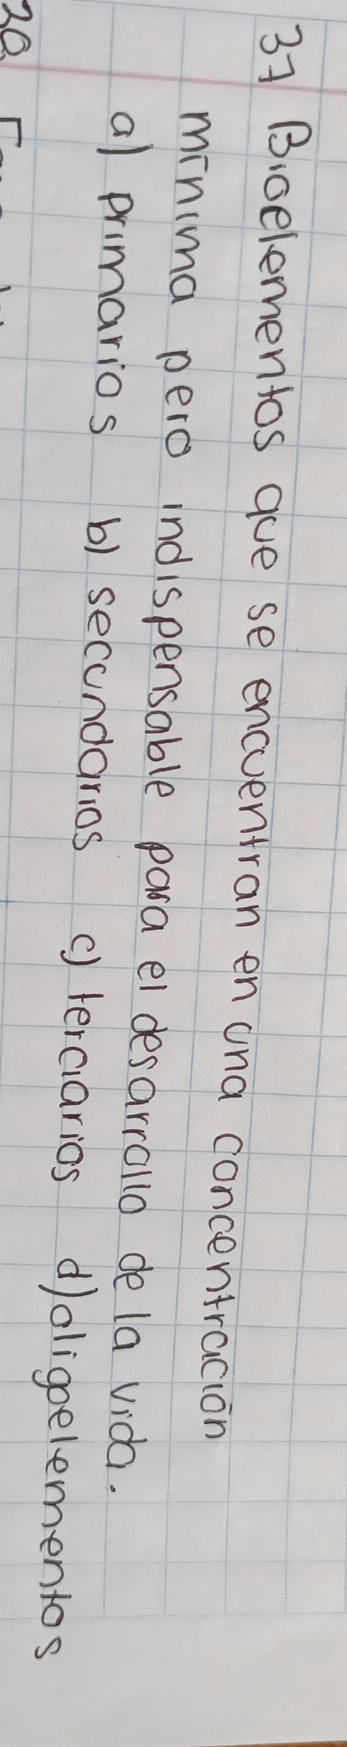 37 Bioelementos que se encuentran en una concentración
mínima pero indispensable para el desarrollo de la vida.
a) primarios b) secundarios c) terciarios d) oligoelementos
38